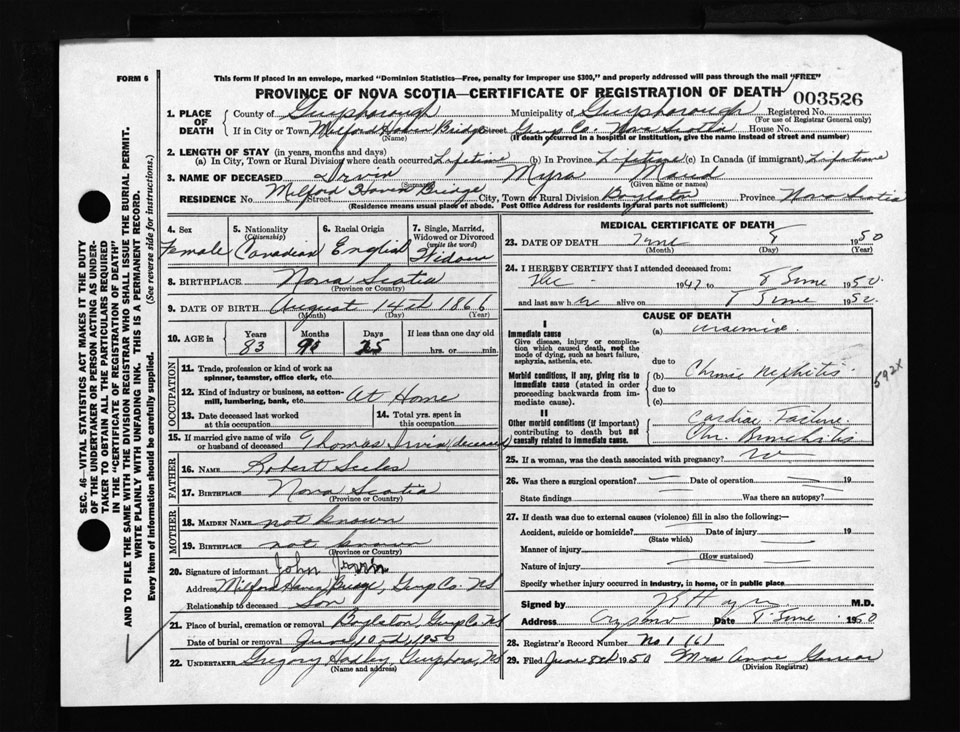 FORM 6
This form if placed in an envelope, marked "Dominion Statistics—Free, penalty for improper use $300," and properly addressed will pass through the mail "FREE"
PROVINCE OF NOVA SCOTIA—CERTIFICATE OF REGISTRATION OF DEATH
003526
1. PLACE OF DEATH
County of Guysborough Municipality of Guysborough Registered No.
(For use of Registrar General only)
If in City or Town Milford Haven Bridge Street Guys Co. Nova Scotia House No.
(Name) (If death occurred in a hospital or institution, give the name instead of street and number)
2. LENGTH OF STAY (in years, months and days)
(a) In City, Town or Rural Division where death occurred Lifetime (b) In Province Lifetime (c) In Canada (if immigrant) Lifetime
3. NAME OF DECEASED Irvin Myra Maud
(Surname) (Given name or names)
RESIDENCE No. Milford Haven Bridge Street City, Town or Rural Division Boylston Province Nova Scotia
(Residence means usual place of abode. Post Office Address for residents in rural parts not sufficient)
4. Sex
Female
5. Nationality (Citizenship)
Canadian
6. Racial Origin
English
7. Single, Married, Widowed or Divorced (write the word)
Widow
8. BIRTHPLACE Nova Scotia
(Province or Country)
9. DATE OF BIRTH August 14th 1866
(Month) (Day) (Year)
10. AGE in
Years Months Days If less than one day old
83 9 25 hrs. or min.
OCCUPATION
11. Trade, profession or kind of work as spinner, teamster, office clerk, etc.
12. Kind of industry or business, as cotton-mill, lumbering, bank, etc. At Home
13. Date deceased last worked at this occupation
14. Total yrs. spent in this occupation
15. If married give name of wife or husband of deceased Thomas Irvin (deceased)
FATHER
16. NAME Robert
17. BIRTHPLACE Nova Scotia
(Province or Country)
MOTHER
18. MAIDEN NAME not known
19. BIRTHPLACE not known
(Province or Country)
20. Signature of informant John Irvin
Address Milford Haven Bridge, Guys Co. NS
Relationship to deceased Son
21. Place of burial, cremation or removal Boylston, Guys Co. NS
Date of burial or removal June 10th, 1950
22. UNDERTAKER Gregory Hadley Guysboro, NS
(Name and address)
MEDICAL CERTIFICATE OF DEATH
23. DATE OF DEATH June 8 1950
(Month) (Day) (Year)
24. I HEREBY CERTIFY that I attended deceased from:
Dec - 1947 to 8 June 1950
and last saw her alive on 8 June 1950
CAUSE OF DEATH
I
Immediate cause
Give disease, injury or complication which caused death, not the mode of dying, such as heart failure, asphyxia, asthenia, etc.
(a) uraemia
due to
Morbid conditions, if any, giving rise to immediate cause (stated in order proceeding backwards from immediate cause).
(b) Chronic Nephritis
due to
(c)
592x
II
Other morbid conditions (if important) contributing to death but not causally related to immediate cause.
Cardiac Failure
Chr. Bronchitis
25. If a woman, was the death associated with pregnancy? no
26. Was there a surgical operation? — Date of operation — 19
State findings Was there an autopsy?
27. If death was due to external causes (violence) fill in also the following:—
Accident, suicide or homicide? Date of injury 19
(State which)
Manner of injury
(How sustained)
Nature of injury
Specify whether injury occurred in industry, in home, or in public place
Signed by M.D.
Address Date 8 June 1950
28. Registrar's Record Number No 1 (6)
29. Filed June 8th 1950 Mrs Anne
(Division Registrar)
SEC. 46—VITAL STATISTICS ACT MAKES IT THE DUTY
OF THE UNDERTAKER OR PERSON ACTING AS UNDERTAKER TO OBTAIN ALL THE PARTICULARS REQUIRED
IN THE "CERTIFICATE OF REGISTRATION OF DEATH"
AND TO FILE THE SAME WITH THE DIVISION REGISTRAR WHO SHALL ISSUE THE BURIAL PERMIT.
WRITE PLAINLY WITH UNFADING INK. THIS IS A PERMANENT RECORD.
Every item of information should be carefully supplied. (See reverse side for instructions.)